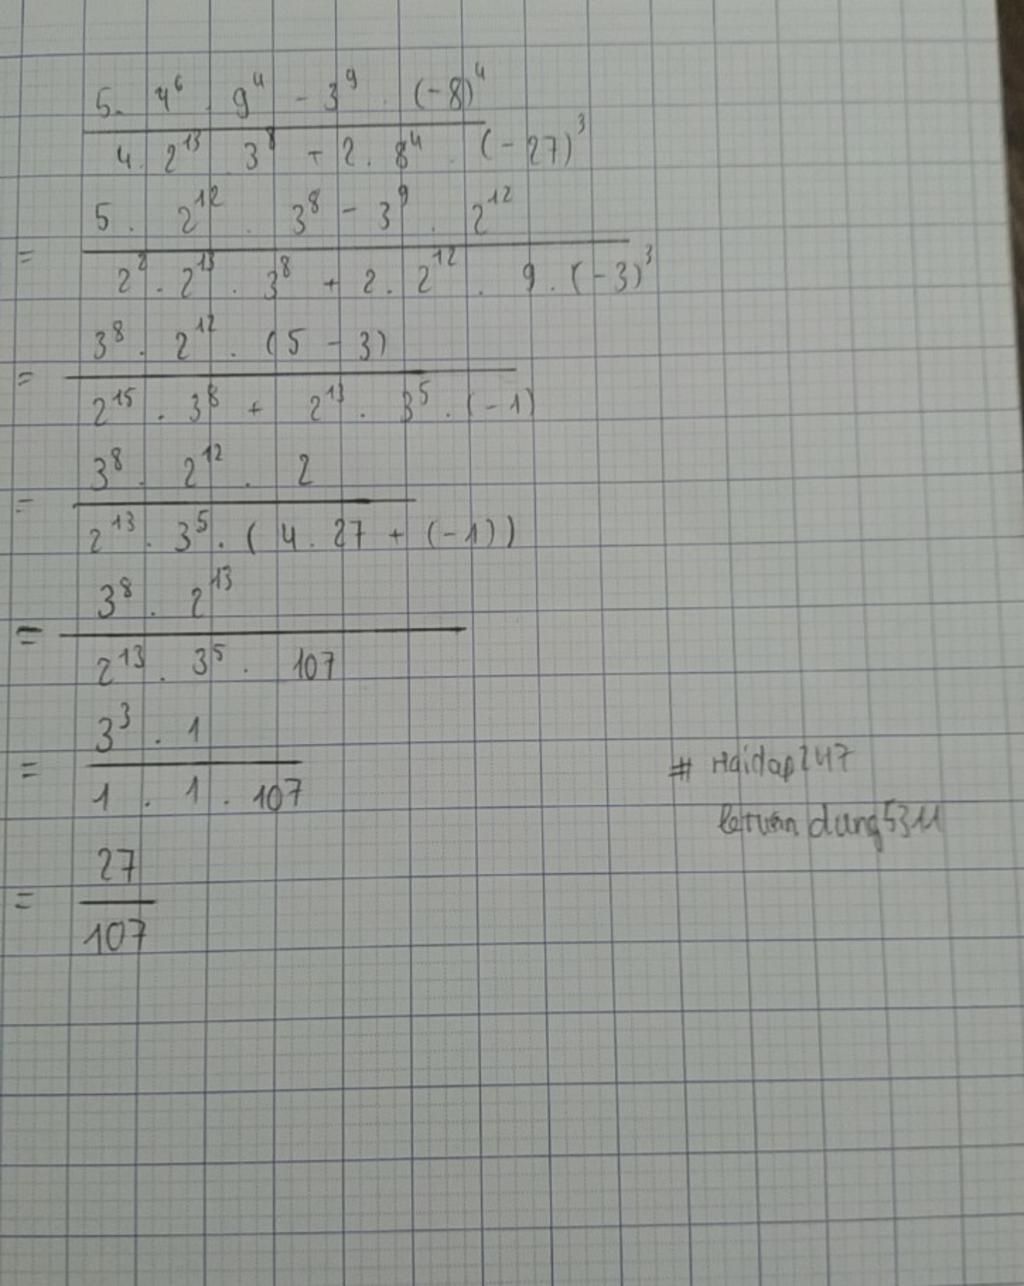 5. 4⁶ . 9⁴ - 3⁹ . (-8)⁴
4. 2¹³ . 3⁸ + 2. 8⁴ . (-27)³
= 5. 2¹² . 3⁸ - 3⁹ . 2¹²
2² . 2¹³ . 3⁸ + 2. 2¹² . 9. (-3)³
= 3⁸ . 2¹² . (5 - 3)
2¹⁵ . 3⁸ + 2¹³ . 3⁵ . (-1)
= 3⁸ . 2¹² . 2
2¹³ . 3⁵ . (4. 27 + (-1))
= 3⁸ . 2¹³
2¹³ . 3⁵ . 107
= 3³ . 1
1 . 1 . 107
# Hoidap247
letuandung5311
= 27
107